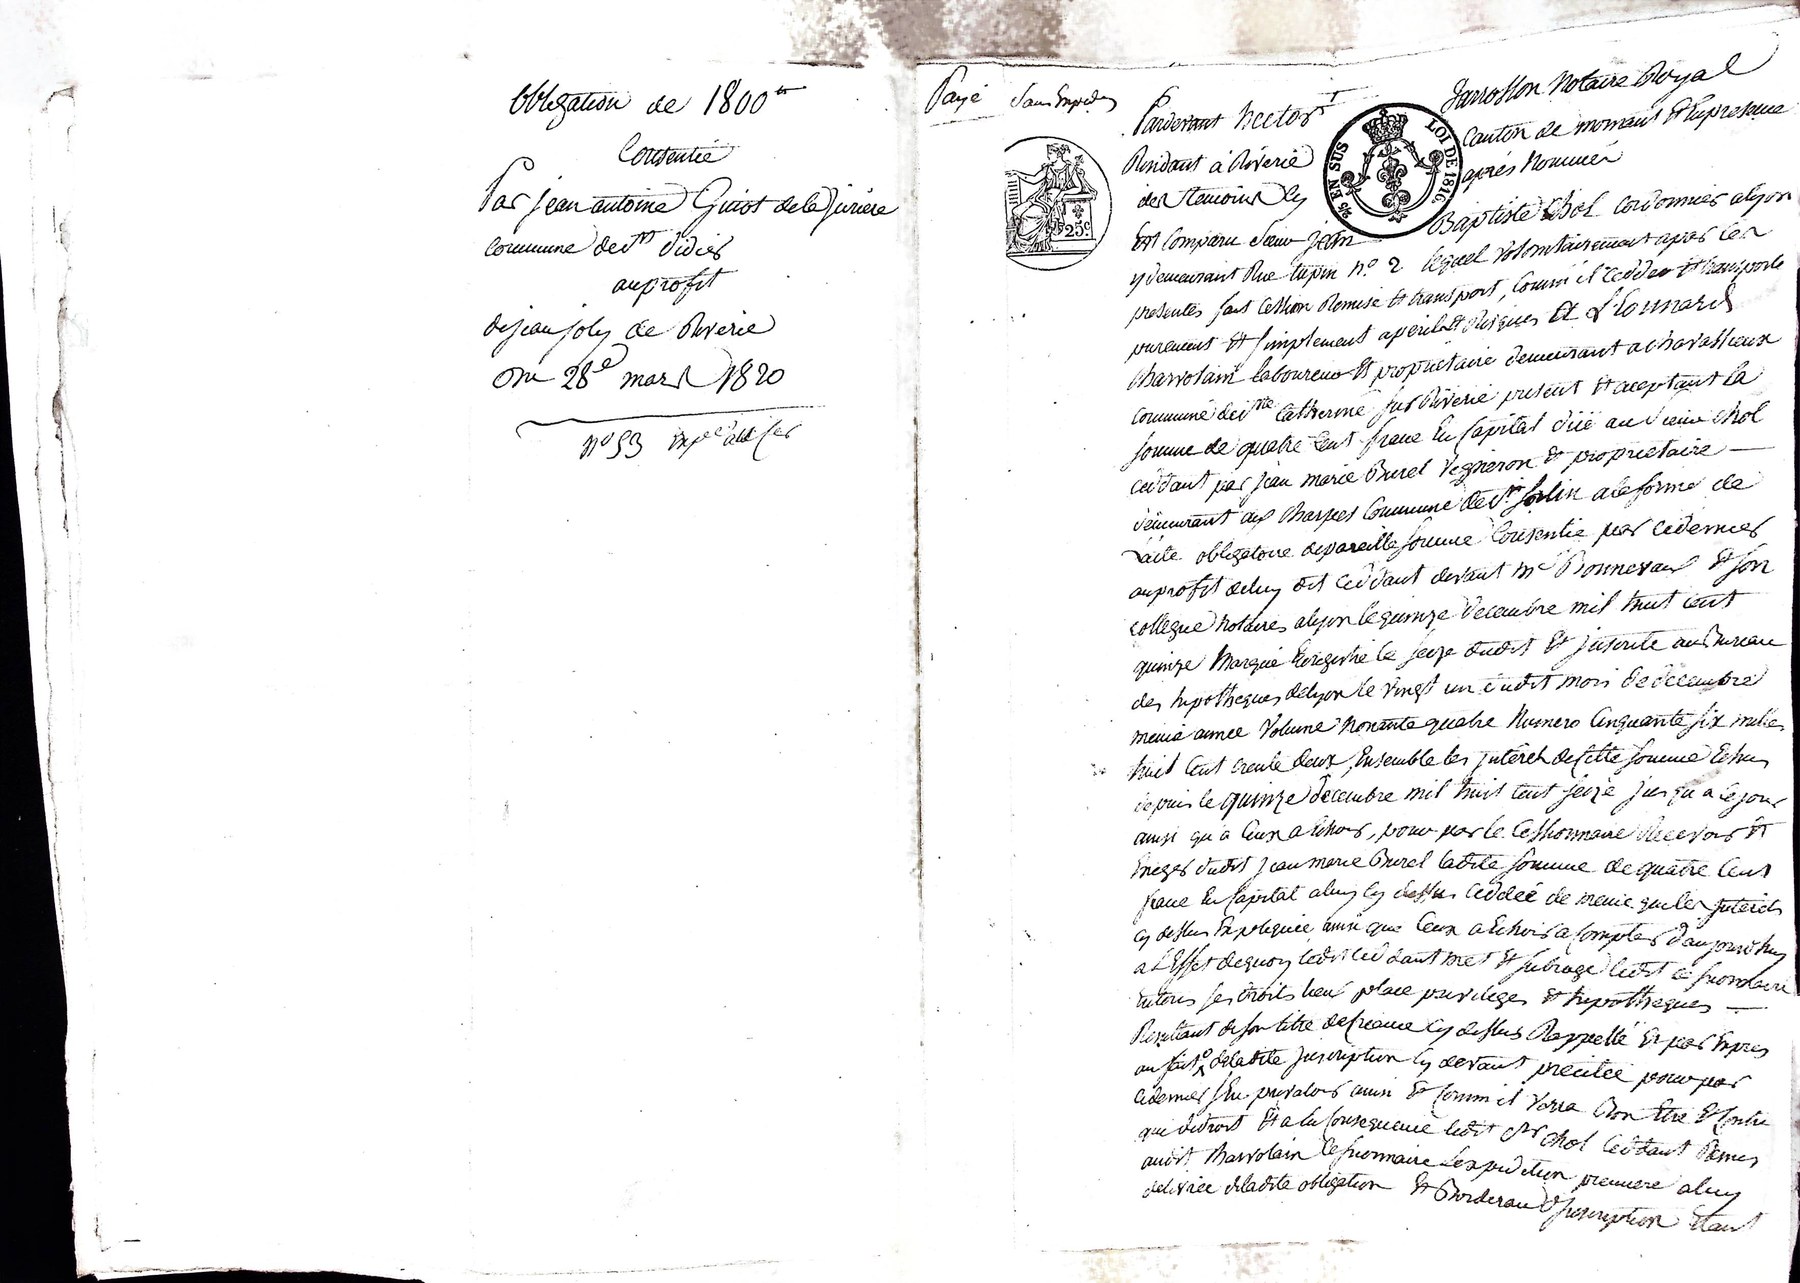 Obligation de 1800 tt
Consentie
Par jean antoine Guiot de la Jivriere
commune de st Didier
au profit
de jean joly de Riverie
Du 28e mars 1820
n° 53
Payé
Pardevant hector Jarrosson Notaire Royal
Residant à Riverie canton de mornant Et En presence
des temoins Cy après Nommés
Est comparu sieur jean Baptiste Chol cordonnier a lyon
y demeurant Rue tupin n° 2 lequel volontairement a par ces
presentes fait cession Remise Et transport, comm'il cedde Et transporte
purement Et simplement a peril Et Risques Et à Léonnard
Charvolain laboureur Et propriétaire demeurant a chavassieux
commune de ste Catherine sur Riverie present Et aceptant la
somme de quatre Cent franc En Capital düe au sieur Chol
ceddant par jean marie Burel vigneron Et proprietaire
demeurant aux Charpes Commune de st Sorlin a la forme de
l'acte obligatoire de pareille somme Consentie par ce dernier
au profit de luy dit Ceddant devant me Bonnevaux Et son
collegue notaires a lyon le quinze decembre mil huit cent
quinze Enregistré le seize dudit Et jnscrite au Bureau
des hipotheques de lyon le vingt un dudit mois de décembre
meme année Volume nonante quatre Numero Cinquante six mille
huit Cent trente deux, Ensemble les jntérets de Cette somme Echus
depuis le quinze décembre mil huit cent seize jusqu'a ce jour
ainsi qu'à Ceux a Echoir, pour par le Cessionnaire Recevoir Et
Exiger dudit jean marie Burel ladite somme de quatre Cent
franc En Capital a luy cy dessus ceddée de meme que les jnterets
cy dessus Expliquée ainsi que Ceux a Echoir a compter d'aujourd'huy
a L'Effet de quoy ledit Ceddant met Et subroge ledit Cessionnaire
En tous ses droits lieu place privileges Et hipotheques
Resultant de son titre de Creance cy dessus Rappellé Et par Exprès
au fait de ladite jnscription Cy devant précitée pour par
ce dernier s'En prevaloir ainsi Et Comm'il verra Bon Etre Et Contre
qui de droit Et a la Consequence ledit sr Chol Ceddant Remis
audit Charvolain Cessionnaire L'expedition premiere a luy
delivrée de ladite obligation Et Borderau d'jnscription Etant